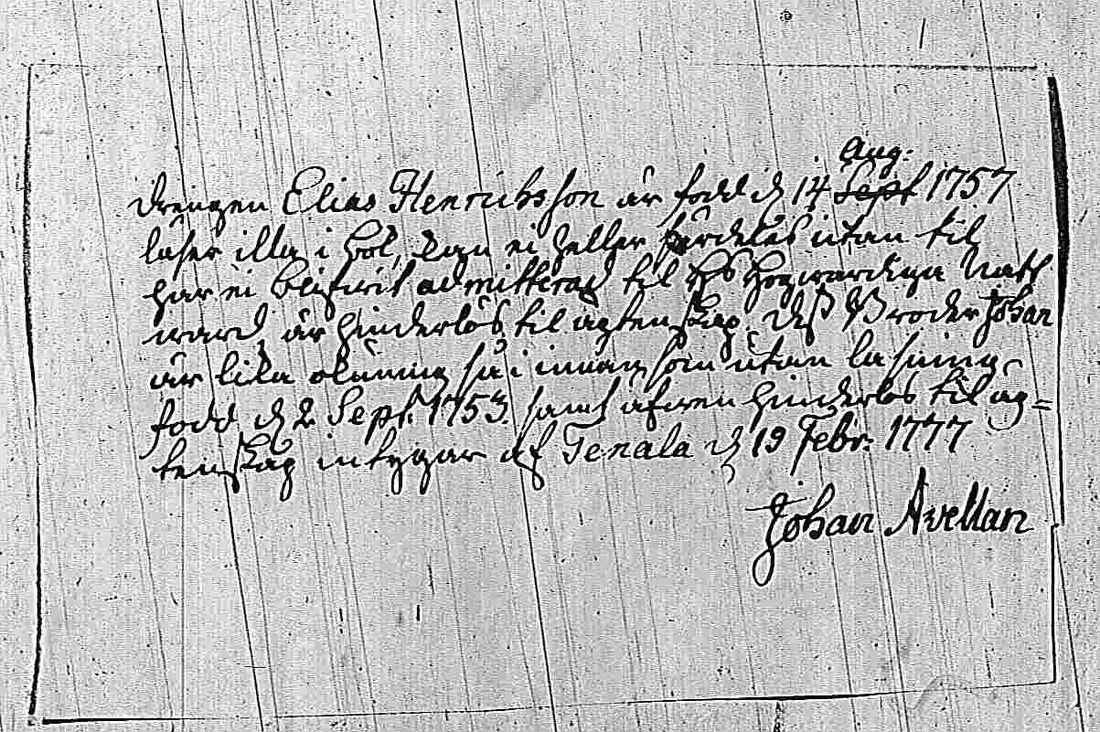 Aug:
Drängen Elias Henrichsson är född d 14 Sept 1757
läser illa i bok, kan ei heller särdeles utan til
har ei blifwit admitterad til Hs Högwärdiga Natt
ward, är hinderlös til ägtenskap. Dess Broder Johan
är lika okunnig så i innan som utan läsning
född d 2 Sept. 1753. samt äfwen hinderlös til äg=
tenskap intygar af Tenala d 19 Febr: 1777
Johan Avellan